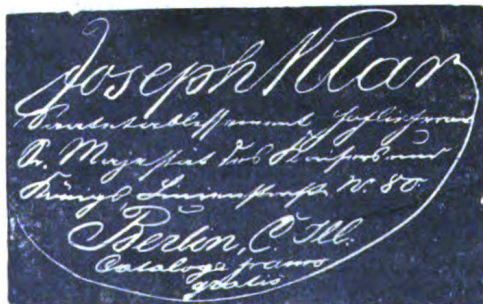 Joseph Klar
Samenetablissement Hoflieferant
Sr. Majestät des Kaisers und
Königs Linienstraße N. 80.
Berlin, C.
Cataloge franco
gratis